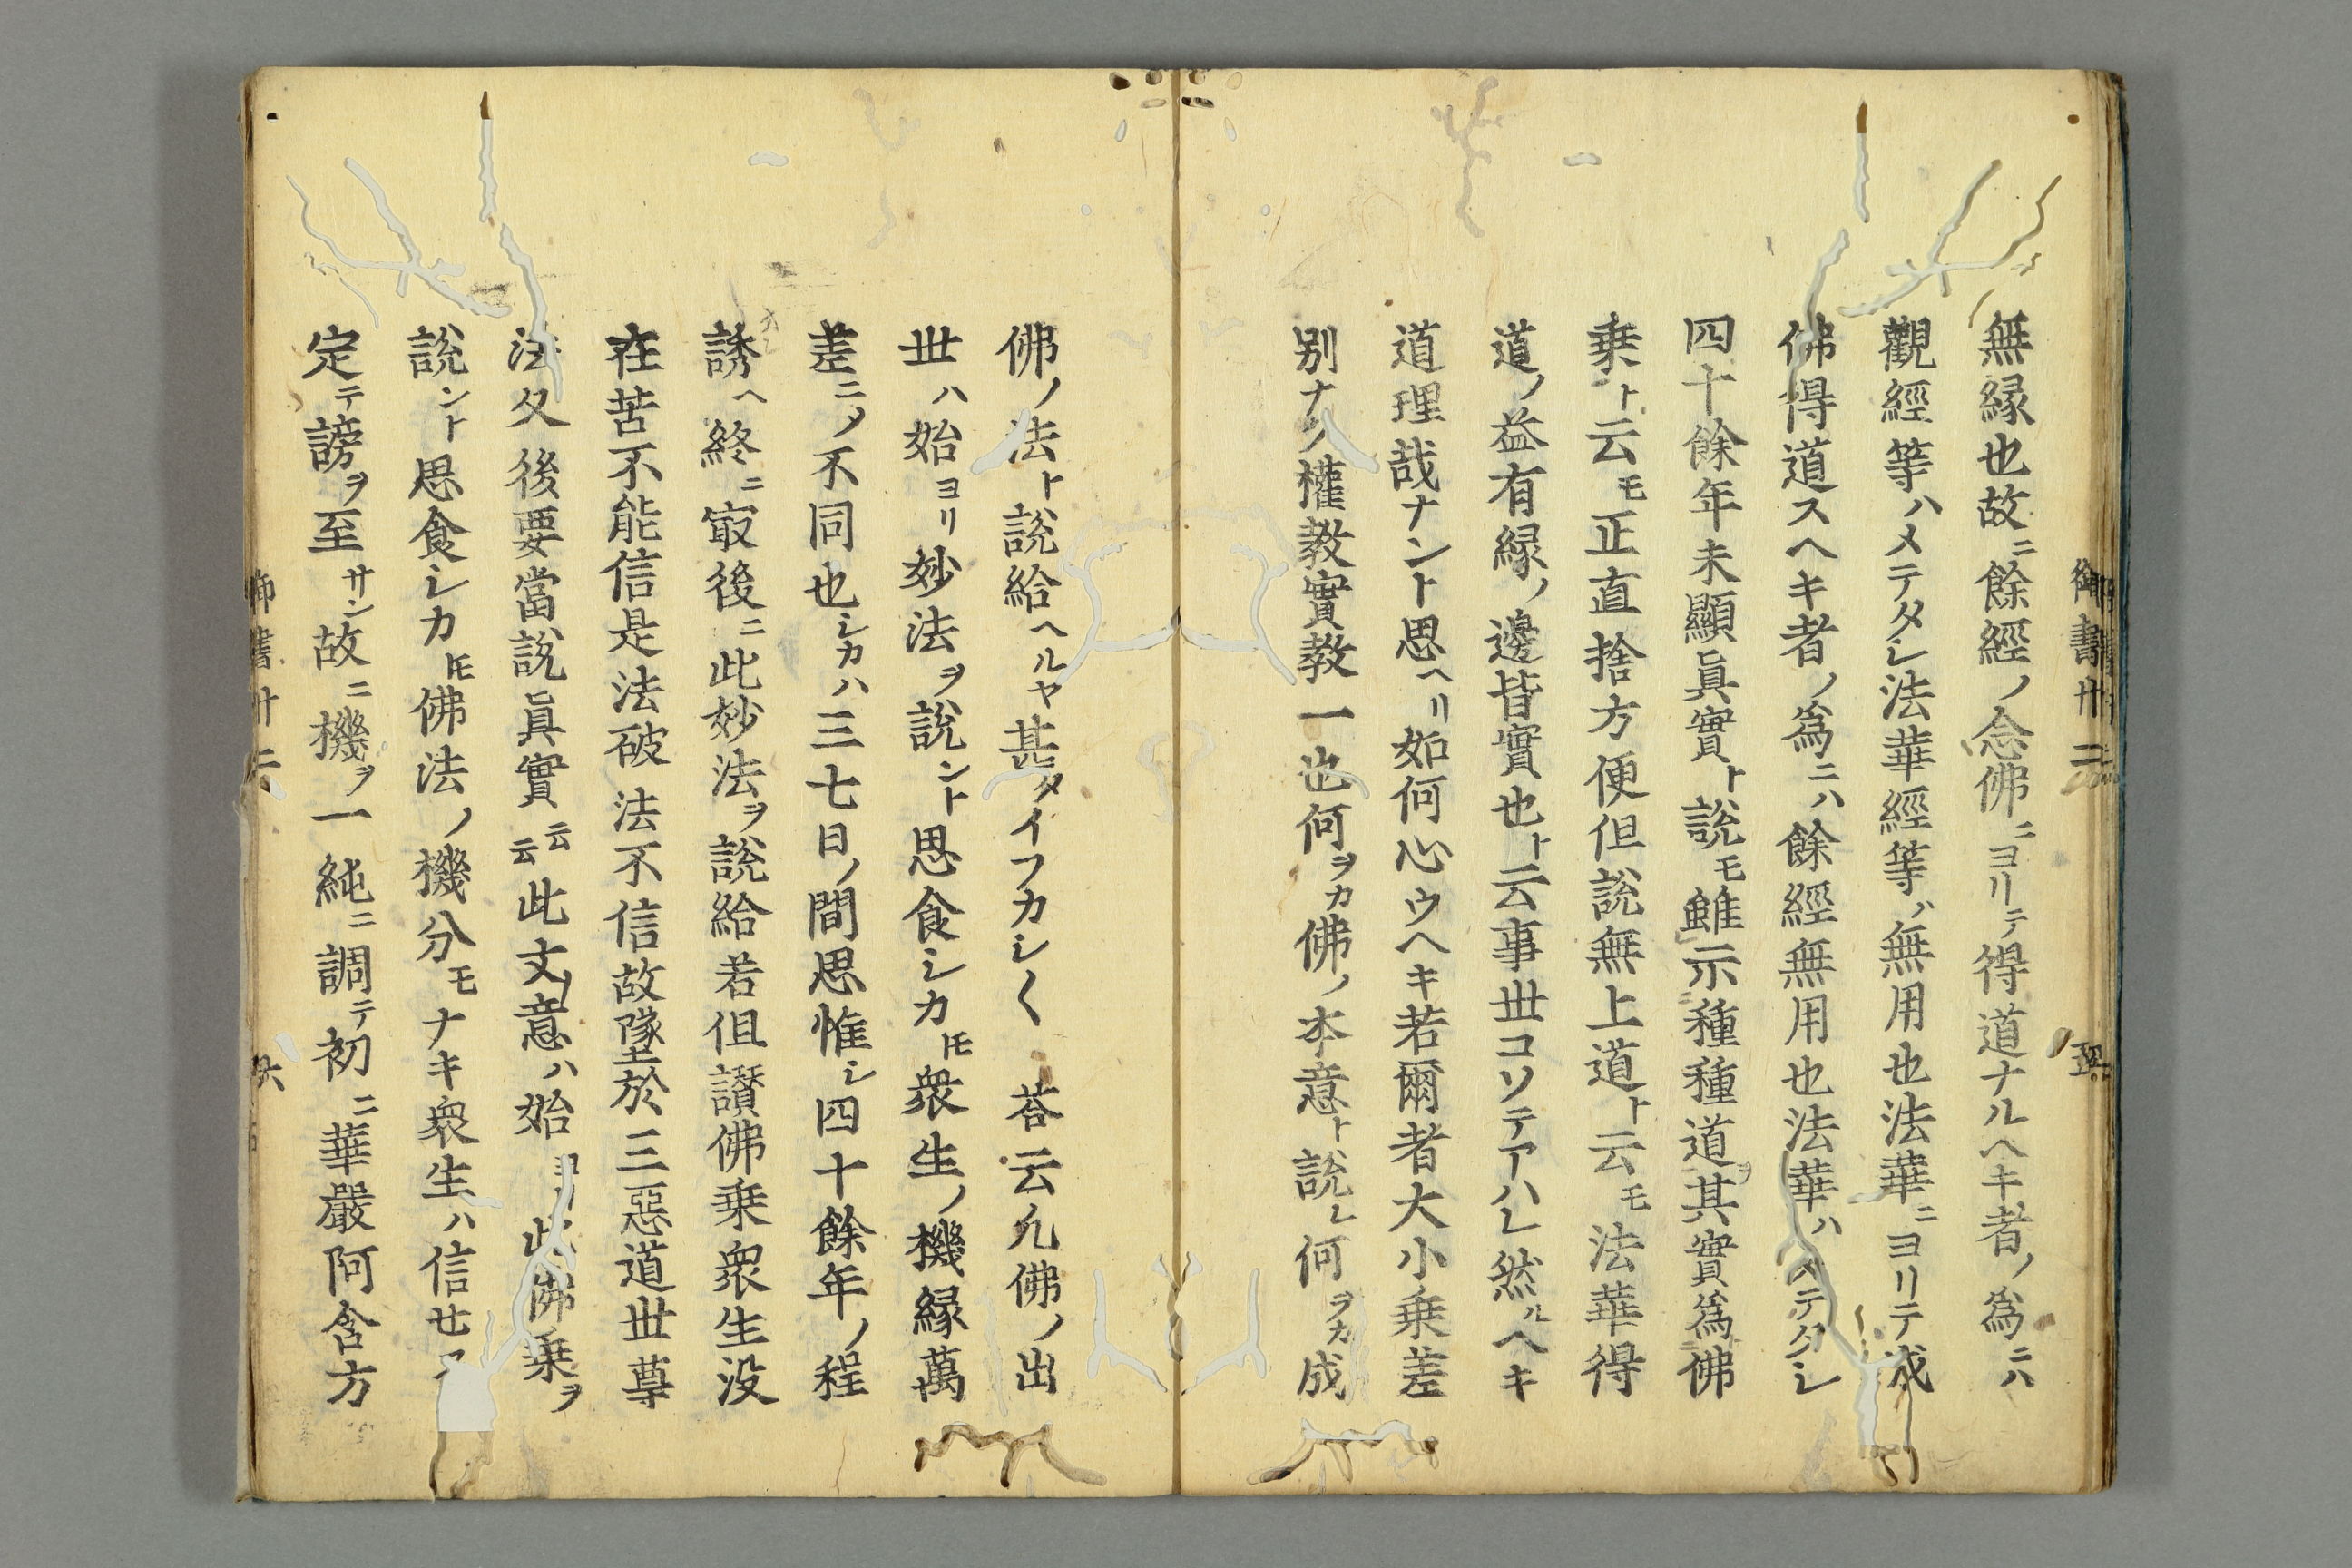 無縁也故ニ餘經ノ念佛ニヨリテ得道ナルヘキ者ノ爲ニハ
觀經等ハメテタシ法華經等ハ無用也法華ニヨリテ成
佛得道スヘキ者ノ爲ニハ餘經無用也法華ハメテタシ
四十餘年未顯眞實ト説モ雖示種種道ヲ其實爲佛
乗ト云モ正直捨方便但説無上道ト云モ法華得
道ノ益有縁ノ邊皆實也ト云事丗コソテアハレ然ルヘキ
道理哉ナント思ヘリ如何心ウヘキ若爾者大小乗差
别ナク權教實教一也何ヲカ佛ノ本意ト説レ何ヲカ成
佛ノ法ト説給ヘルヤ甚タイフカシ〱 荅云凢佛ノ出
丗ハ始ヨリ妙法ヲ説ント思食シカ𪜈衆生ノ機縁萬
差ニメノ不同也シカハ三七日ノ間思惟シ四十餘年ノ程
誘ヘ終ニ㝡後ニ此妙法ヲ説給若但讃佛乗衆生没
在苦不能信是法破法不信故墜於三惡道丗尊
法久後要當説眞實云云此文ノ意ハ始ヨリ此佛乗ヲ
説ント思食シカ𪜈佛法ノ機分モナキ衆生ハ信セス
定テ謗ヲ至サン故ニ機ヲ一純ニ調テ初ニ華嚴阿含方
御書卅二
御書卄六